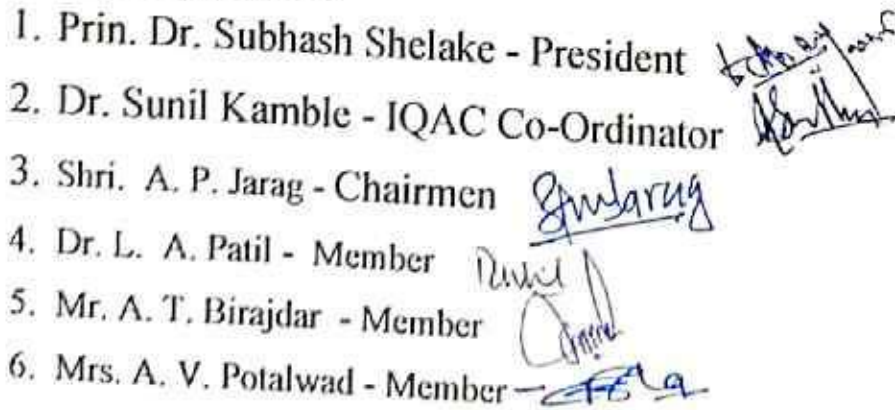 1. Prin. Dr. Subhash Shelake - President
2. Dr. Sunil Kamble - IQAC Co-Ordinator
3. Shri. A. P. Jarag - Chairmen
4. Dr. L. A. Patil - Member
5. Mr. A. T. Birajdar - Member
6. Mrs. A. V. Potalwad - Member